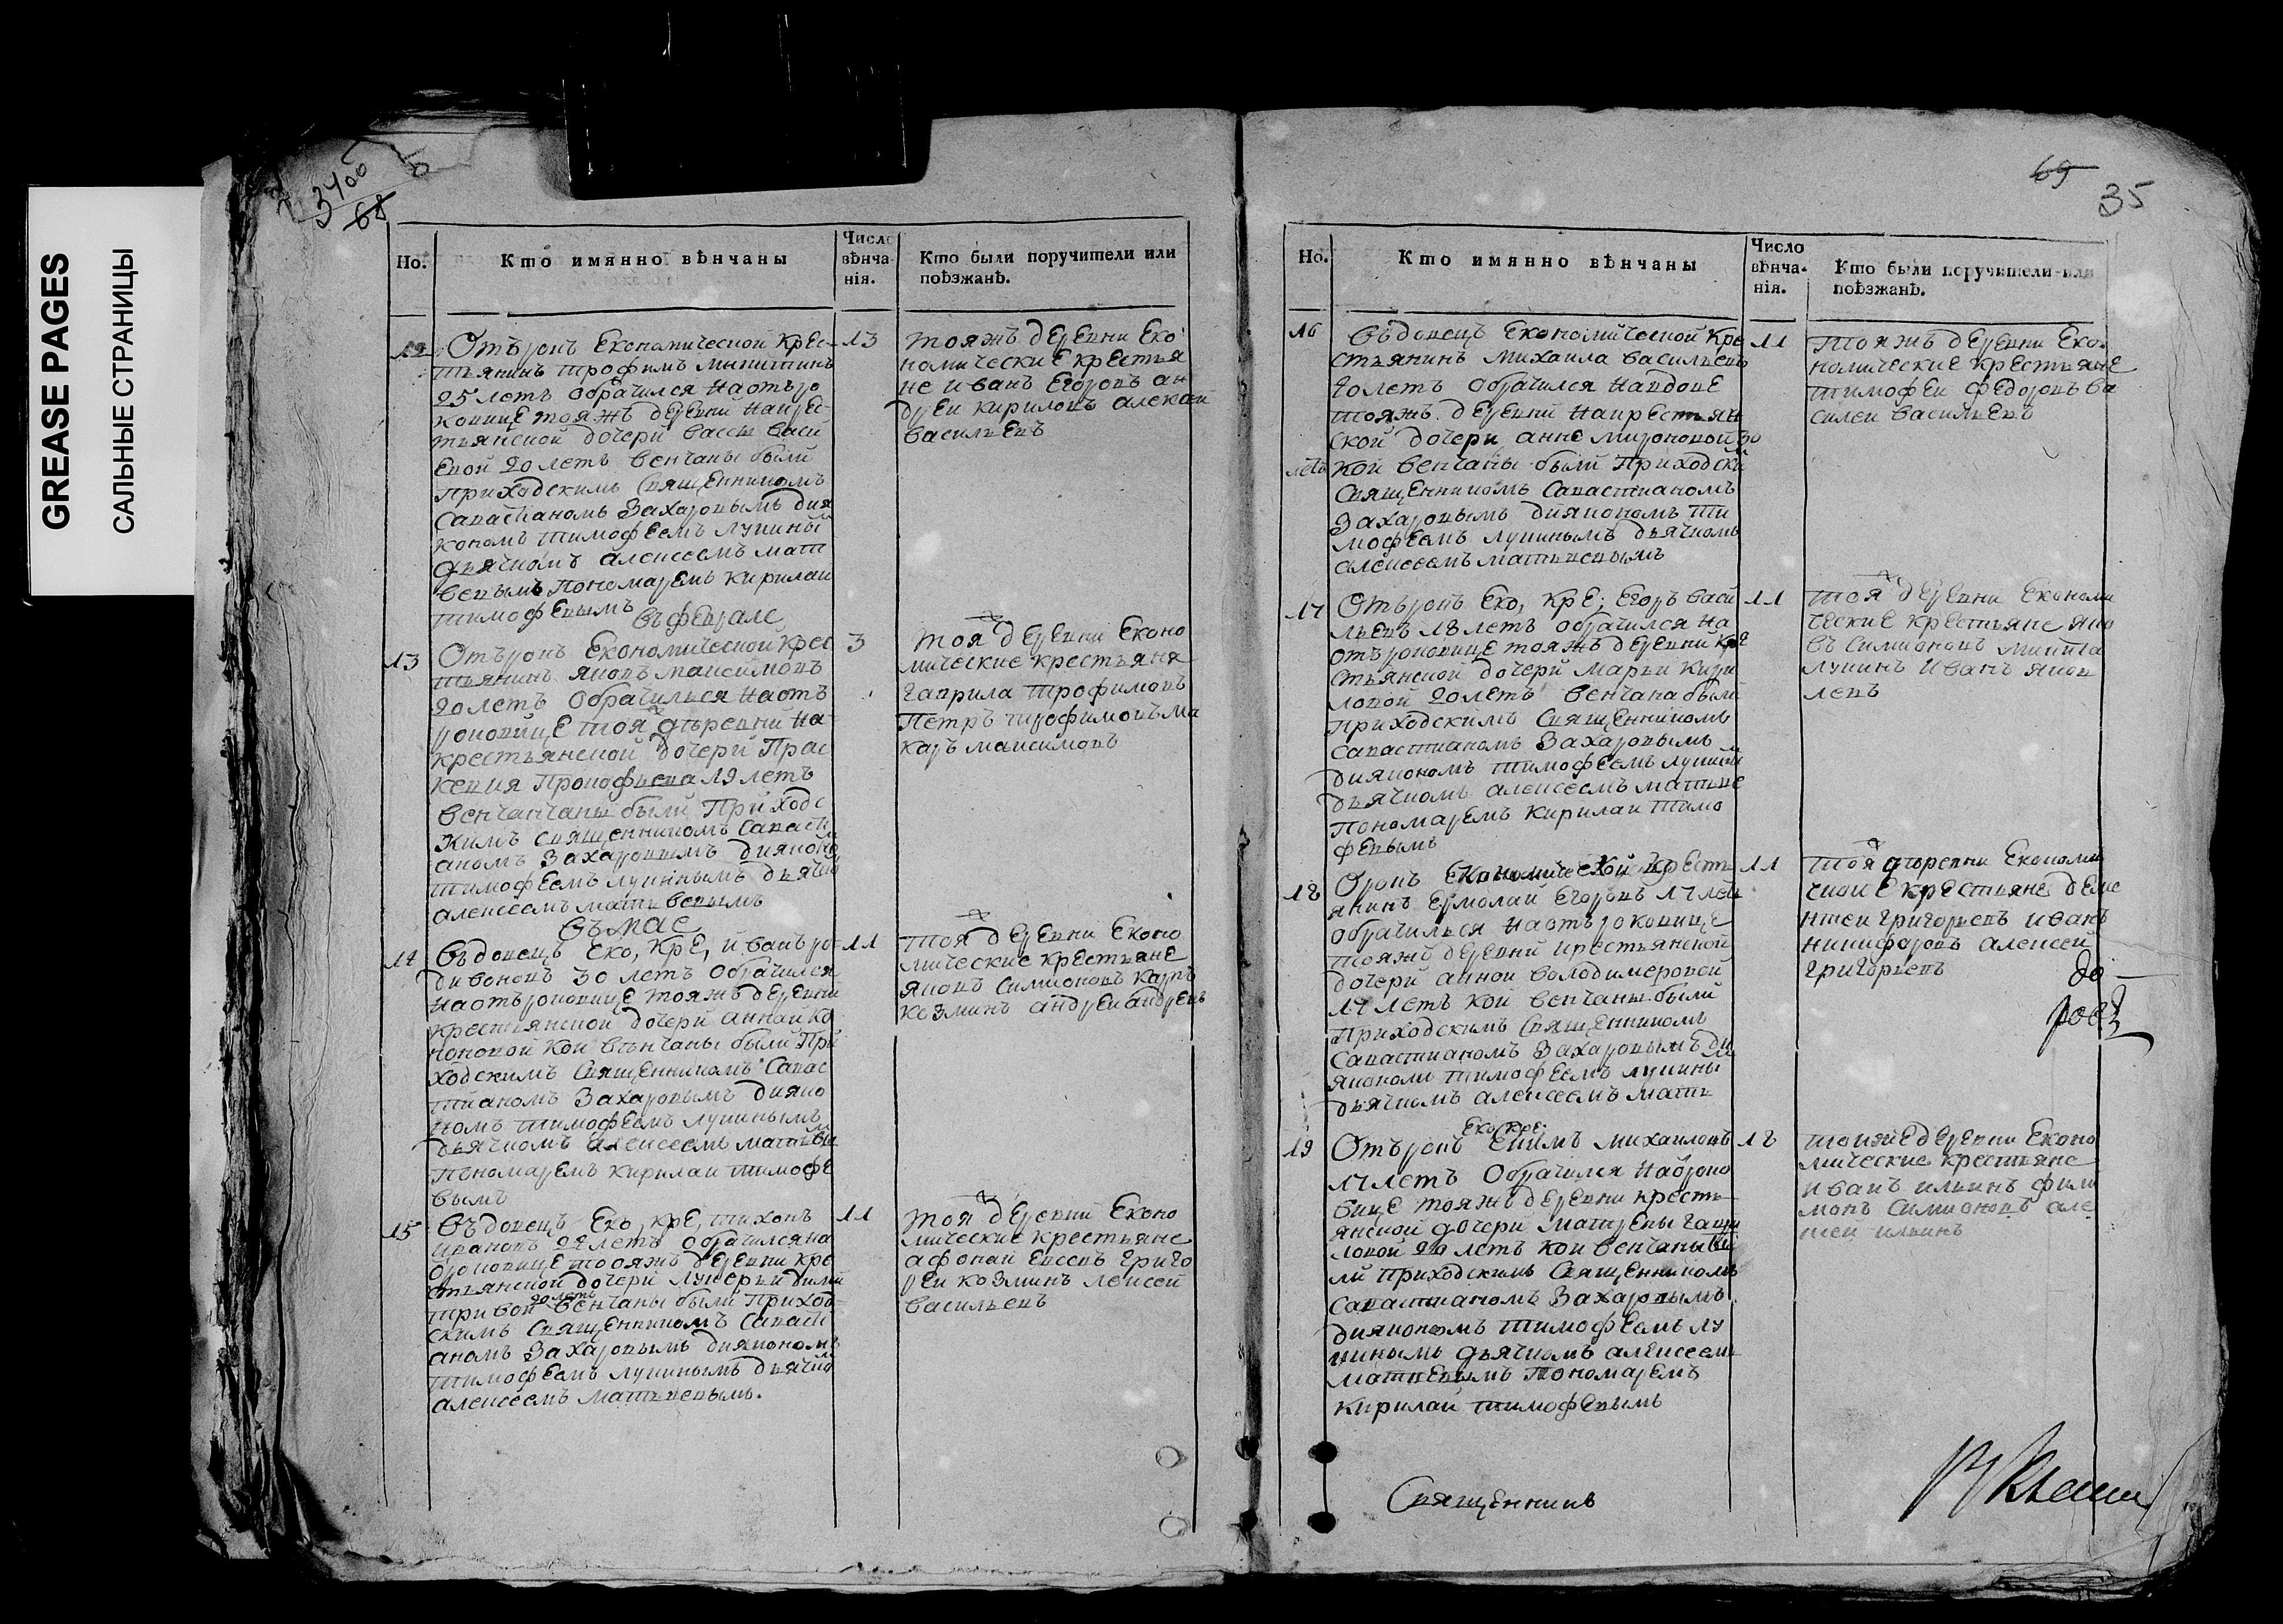 GREASE PAGES
САЛЬНЫЕ СТРАНИЦЫ
3400
68
Но.
Кто имянно вѣнчаны
Число вѣнча-нія.
Кто были поручители или поѣзжанѣ.
12
Отърокъ Економической Крес-
тьянинъ трофимъ микитинъ
25 летъ обрачился Наотъро
ковице тояжъ деревни Накрес-
тьянской дочери вассы васи
евой 20 летъ венчаны были
Приходскимъ Священникомъ
Савастianомъ Захаровымъ дия
кономъ тимофеемъ лукины
дьячкомъ алексеемъ мат
веевымъ Пономаремъ кирилаи
тимофевымъ
13
тояжъ деревни Еко
номические крестья
не иванъ Егоровъ ан
дреи кириловъ алексеи
васильевъ
въ феврале
13
Отърокъ Економической Крес
тьянинъ яковъ максимовъ
20 летъ Обрачилься Наотъ
роковице тояж дъревни На
крестьянской дочери Прас
кевия Прокофьева 19 летъ
венчанчаны были Приходс
кимъ священникомъ Савасти
аномъ Захаровымъ дияконо
тимофеемъ лукинымъ дьячко
алексеемъ матвевымъ
3
тояж деревни Еконо
мические крестьяня
гаврила трофимовъ
Петръ трофимовъ ма
каръ максимовъ
въ мае
14
Въдовецъ Еко, Кре, иванъ ро-
дивоновъ 30 летъ обрачился
Наотъроковице тояжъ деревни
крестьянской дочери аннаи ко
ноновой кои вѣнчаны были При
ходскимъ Священникомъ Савас
тианомъ Захаровымъ дияко
номъ тимофеемъ лукинымъ
дьячкомъ алексеемъ матвевы
Пономаремъ кирилаи тимофе
вымъ
11
тояж деревни Еконо
мические крестьяне
яковъ симионовъ карпъ
козминъ андреи андреевъ
15
Въдовецъ Еко, Кре, тихонъ
ивановъ 22 летъ обрачился на
отъроковице тояжъ деревни кре
стьянской дочери лукерьи дими
тривой 20 летъ венчаны были Приход
скимъ Священникомъ Савасти
аномъ Захаровымъ дияконом
тимофеемъ лукинымъ дьячко
алексеемъ матвеевымъ.
11
тояж деревни Еконо
мические крестьяне
афонаи евсевъ григо
реи козминъ лексей
васильевъ
69
35
Но.
Кто имянно вѣнчаны
Число вѣнча-нія.
Кто были поручители или поѣзжанѣ.
16
Въдовецъ Економической Кре
стьянинъ михаила васильевъ
20 летъ обрачился Навдове
тояжъ деревни Накрестьян
ской дочери анне мироновой 30
летъ кои венчаны были Приходски
Священникомъ Савастианомъ
Захаровымъ дияконом ти
мофеемъ лукинымъ дьячкомъ
алексеемъ матвеевымъ
11
тояжъ деревни Еко-
номические крестьяне
тимофеи федоровъ ва
силеи васильевъ
17
Отърокъ Еко, кре, Егоръ васи
льевъ 18 летъ обрачился на
отъроковице тояжъ деревни кре
стьянской дочери марьи кири
ловой 20 летъ венчана были
приходскимъ Священникомъ
савастианомъ Захаровымъ
дияконом тимофеемъ лукины
дьячкомъ алексеемъ матьве
Пономаремъ кирилаи тимо
февымъ
11
тояж деревни Економи
ческие крестьяне яко
въ симионовъ микита
лукинъ иванъ яков
левъ
18
Орокъ Економической крестъ
янинъ Ермолаи Егоровъ 17 лет
обрачилься наотъроковице
тояжъ деревни крестьянской
дочери аннои володимеровой
17 летъ кои венчаны были
Приходскимъ Священникомъ
Савастианомъ Захаровымъ ди
яконом тимофеемъ лукины
дьячкомъ алексеемъ матв
11
тояж дъревни Економи
ческие крестьяне
григорьевъ иванъ
никифоровъ алексей
григорьевъ
до
19
Еко, кре,
Отърокъ Екимъ михаиловъ
17 летъ Обрачился Наброко
вице тояжъ деревни кресть-
янской дочери матрены гаври
ловой 20 летъ кои венчаны бы
ли Приходскимъ Священником
савастианомъ Захаровымъ
дияконом тимофеемъ лу
кинымъ дьячкомъ алексеем
матвевымъ Пономаремъ
кирилаи тимофевымъ
18
тоияже деревни Еконо
мические крестьяне
иванъ ильинъ фили
монъ симионовъ але
ксеи ильинъ
Священникъ